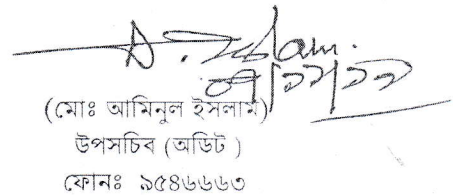 (মোঃ আমিনুল ইসলাম)
উপসচিব (অডিট )
ফোনঃ ৯৫৪৬৬৬৩